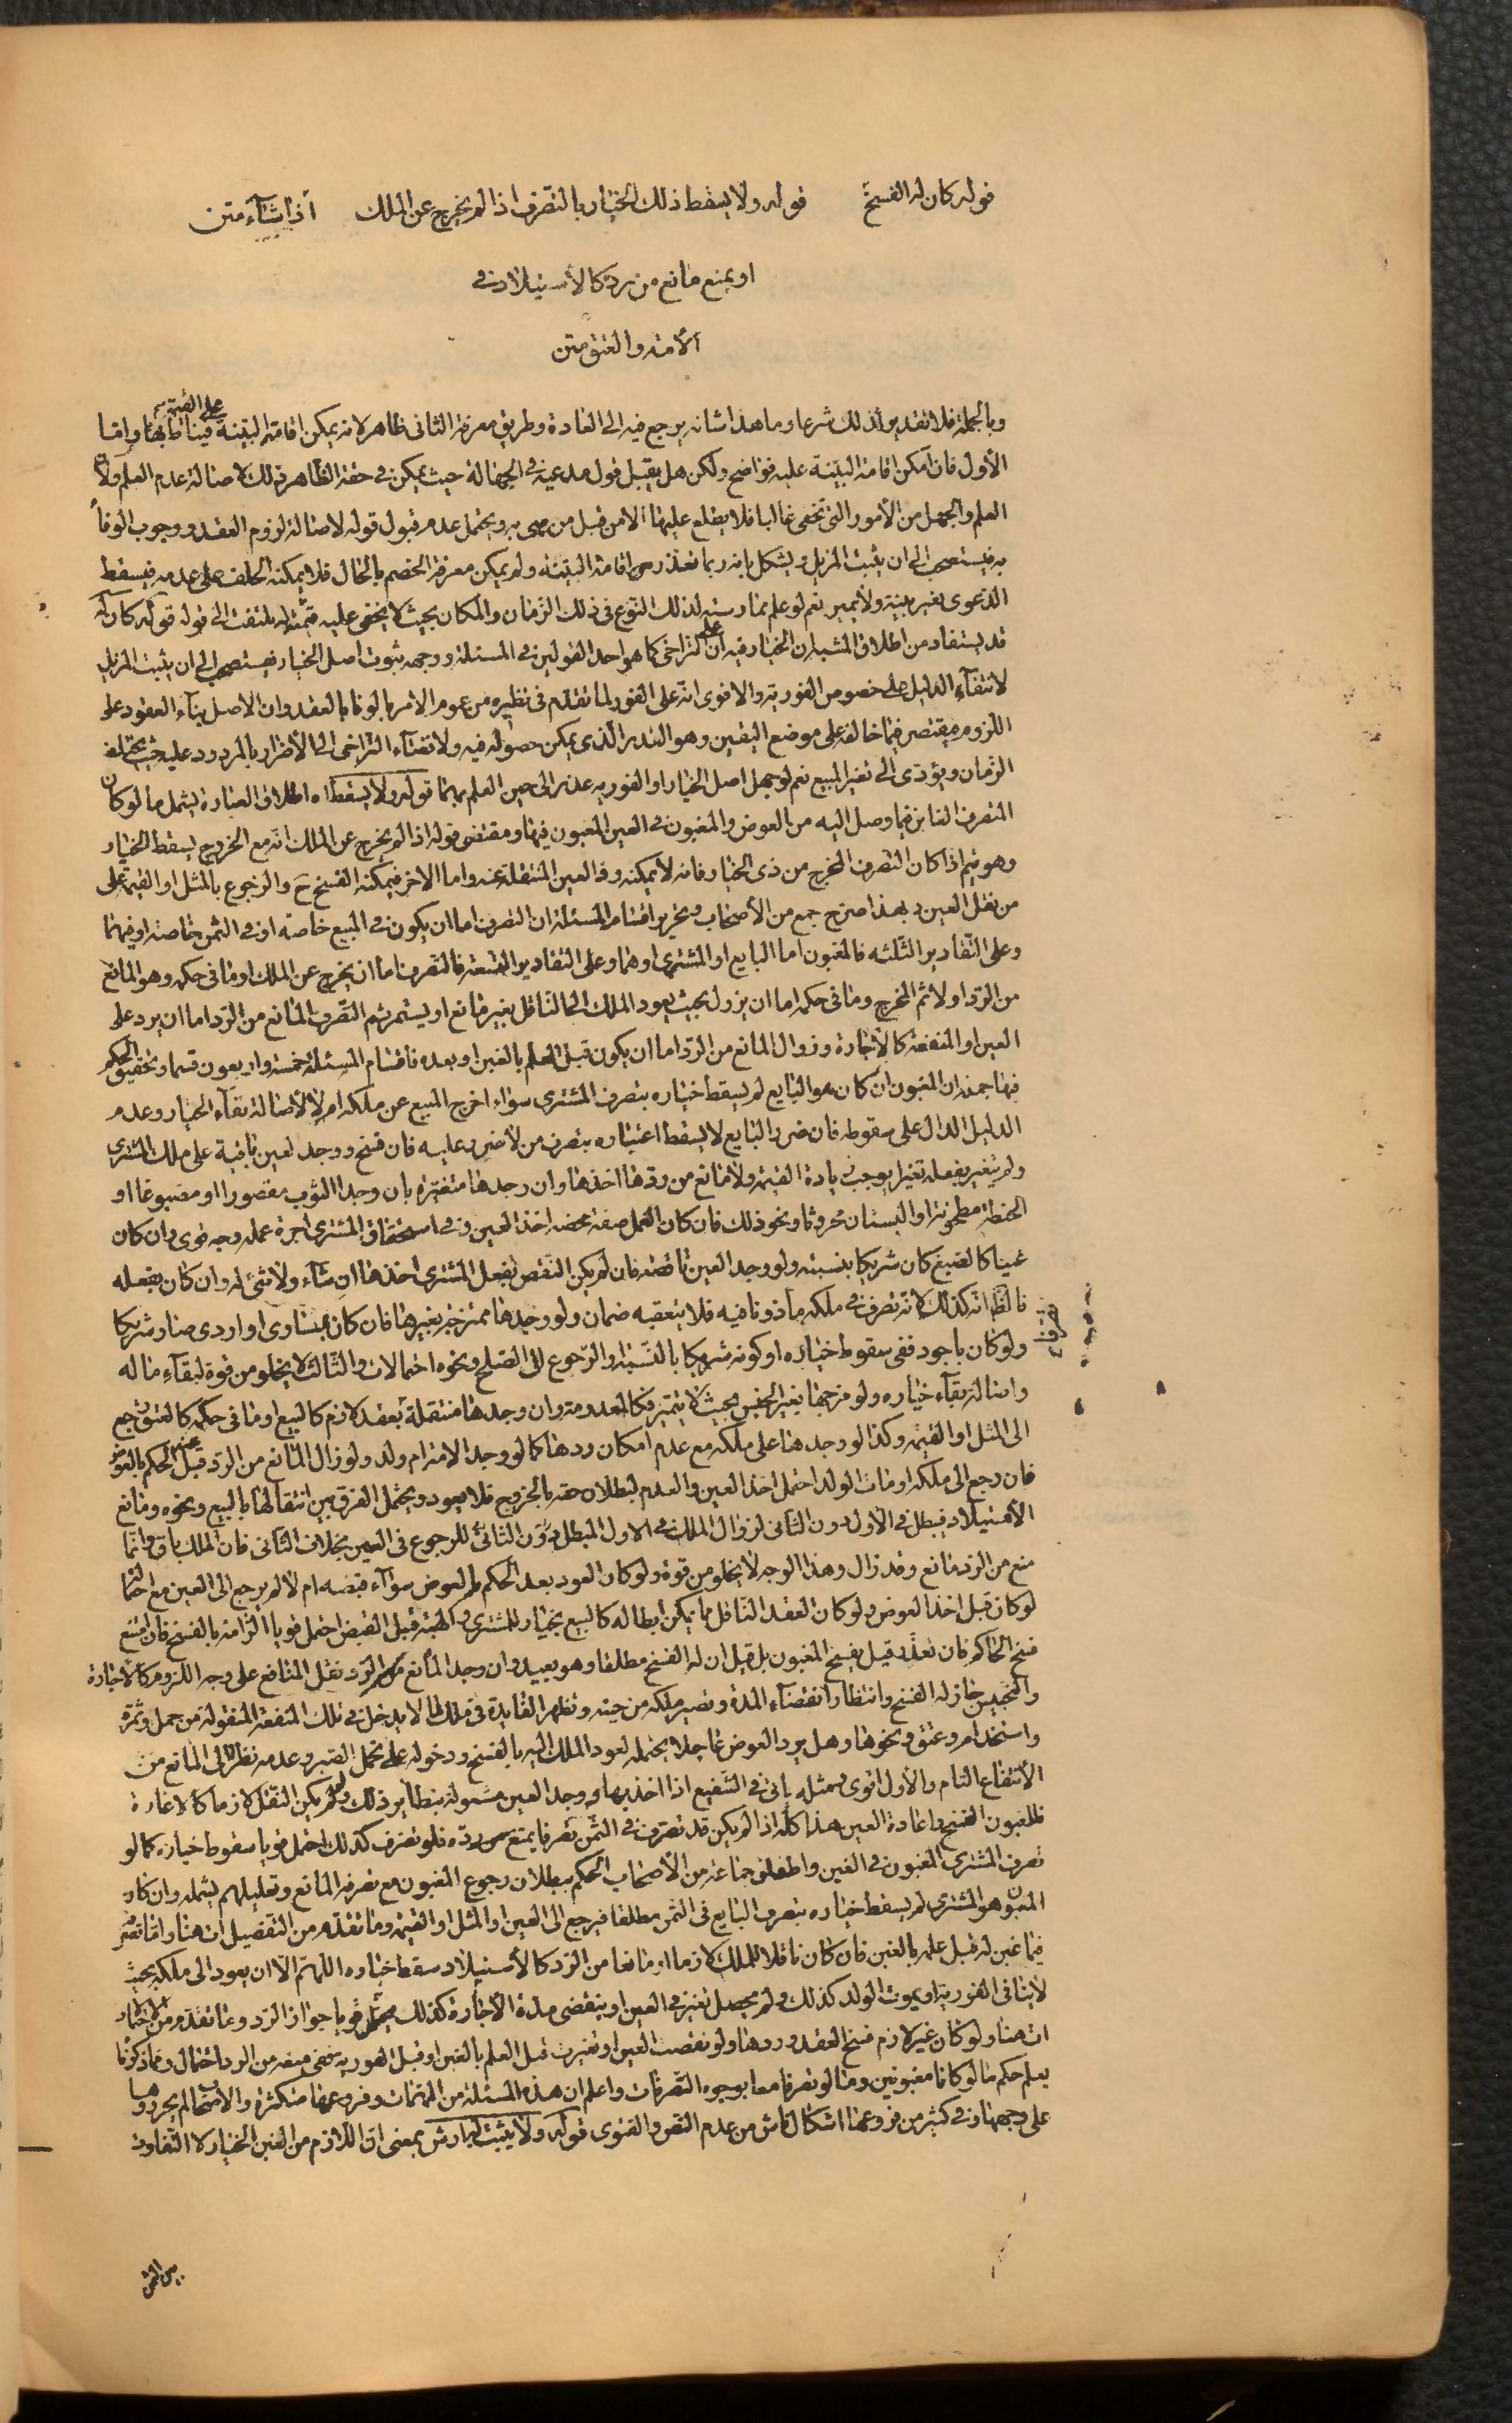 قوله كان له الفسخ قوله ولا يسقط ذلك الخيار بالتصرف اذا لم يخرج عن الملك اذا شآء متن
او يمنع مانع من رده كالأستيلاد فى
الأمة والعتق متن
وبالجملة فلا تقدير لذلك شرعا وما هذا شانه يرجع فيه الى العادة وطريق معرفة الثانى ظاهر لانه يمكن اقامة البينة على القيمة فيناط بها واما
الأول فان امكن اقامة البيّنة عليه فواضح ولكن هل يقبل قول مدعيه فى الجهالة حيث يمكن فى حقه الظاهر ذلك لاصالة عدم العلم ولان
العلم والجهل من الأمور التى تخفى غالبا فلا يطلع عليها الا من قبل من هى به ويحتمل عدم قبول قوله لاصالة لزوم العقد ووجوب الوفأ
به فيستصحب الى ان يثبت المزيل ويشكل بانه ربما تعذر اقامة البينة ولم يمكن معرفة الخصم بالحال فلا يمكنه الحلف على عدمه فيسقط
الدعوى بغير بينة ولا يمين نعم لو علم ممارسته لذلك النوع فى ذلك الزمان والمكان بحيث لا يخفى عليه قيمته لم يلتفت الى قوله قوله كان له
قد يستفاد من اطلاق المشيئة ان الخيار فيه على التراخى كما هو احد القولين فى المسئلة ووجهه ثبوت اصل الخيار فيستصحب الى ان يثبت المزيل
لانتفآء الدليل على خصوص الفورية والاقوى انّه على الفور لما تقدم فى نظيره من عموم الأمر بالوفا بالعقد وان الاصل بنآء العقود على
اللزوم فيقتصر فيما خالفه على موضع اليقين وهو القدر الّذى يمكن حصوله فيه ولاقتضآء التراخى الى الأضرار بالمردود عليه حيث يختلف
الزمان ويؤدى الى تغير المبيع نعم لو جهل اصل الخيار او الفورية عذر الى حين العلم بهما قوله ولا يسقط اه اطلاق العبارة يشمل ما لو كان
المتصرف الغابن فيما وصل اليه من العوض والمغبون فى العين المغبون فيها ومقتضى قوله اذا لم يخرج عن الملك انّه مع الخروج يسقط الخيار
وهو يتم اذا كان التصرف المخرج من ذى الخيار فانه لا يمكنه رد العين المنتقلة عنه واما الاخر فيمكنه الفسخ ح والرجوع بالمثل او القيمة على
من نقل العين وبهذا صرّح جمع من الأصحاب وتحرير اقسام المسئلة ان التصرف اما ان يكون فى المبيع خاصة او فى الثمن خاصة او فيهما
وعلى التّقادير الثّلثه فالمغبون اما البايع او المشترى او هما وعلى التقادير التسعة فالتصرف اما ان يخرج عن الملك او ما فى حكمه وهو المانع
من الرّد اولا ثم المخرج وما فى حكمه اما ان يزول بحيث يعود الملك الى النّاقل بغير مانع او يستمر ثم التّصرف المانع من الرّد اما ان يرد على
العين او المنفعة كالأجارة وزوال المانع من الرّد اما ان يكون قبل العلم بالغبن او بعده فاقسام المسئلة خمسة واربعون قسما وتحقيق الحكم
فيها جملة ان المغبون ان كان هو البايع لم يسقط خياره بتصرف المشترى سواء اخرج المبيع عن ملكه ام لا لأصالة بقآء الخيار وعدم
الدليل الدال على سقوطه فان ضرر البايع لا يسقط اعتباره بتصرف من لا ضرر عليه فان فسخ ووجد العين باقية على ملك المشترى
ولم يتغير بفعله تغيرا يوجب زيادة القيمة ولا مانع من ردّها اخذها وان وجدها متغيره بان وجد الثوب مقصورا او مصبوغا او
الحنطة مطحونة او البستان محروثا ونحو ذلك فان كان العمل صفة محضة اخذ العين وفى استحقاق المشترى اجرة عمله وجه قوى وان كان
عينا كالصبغ كان شريكا بنسبته ولو وجد العين ناقصة فان لم يكن النّقص بفعل المشترى اخذها ان شآء ولا شئ له وان كان بفعله
فالظّ انّه كذلك لانّه تصرف فى ملكه مأذونا فيه فلا يتعقبه ضمان ولو وجدها ممتزجة بغيرها فان كان بمساوى او اردى صار شريكا
ولو كان باجود ففى سقوط خياره او كونه شريكا بالنّسبة او الرّجوع الى الصّلح ونحوه احتمالات والثّالث لا يخلو من قوة لبقآء ماله
واصالة بقآء خياره ولو مزجها بغير الجنس بحيث لا يتميز فكالمعدومة وان وجدها منتقلة بعقد لازم كالبيع او ما فى حكمه كالعتق رجع
الى المثل او القيمة وكذا لو وجدها على ملكه مع عدم امكان ردها كما لو وجد الامة ام ولد ولو زال المانع من الرّد قبل الحكم بالعوض
فان رجع الى ملكه او مات الولد احتمل اخذ العين والعدم لبطلان حقه بالخروج فلا يعود ويحتمل الفرق بين انتقالها بالبيع ونحوه ومانع
الأستيلاد فيبطل فى الأول دون الثّانى لزوال الملك فى الاول المبطل دون الثانى للرجوع فى العين بخلاف الثّانى فان الملك باق وانّما
منع من الرّد مانع وقد زال وهذا الوجه لا يخلو من قوة ولو كان العود بعد الحكم بالعوض سوآء قبضه ام لا لم يرجع الى العين مع احتما
لو كان قبل اخذ العوض ولو كان العقد النّاقل مما يمكن ابطاله كالبيع بخيار للمشترى والهبة قبل القبض احتمل قويا الزامه بالفسخ فان امتنع
فسخ الحاكم فان تعذّر قيل يفسخ المغبون بل قيل ان له الفسخ مطلقا وهو بعيد وان وجد المانع من الرّد نقل المنافع على وجه اللزوم كالأجارة
والتحبيس جاز له الفسخ وانتظار انقضآء المدة وتصير ملكه من حينه وتظهر الفايدة فى ملك ما لا يدخل فى تلك المنفعة المنقولة من حمل وثمرة
واستخدام وعتق ونحوها وهل يرد العوض عاجلا يحتمله لعود الملك اليه بالفسخ ودخوله على تحمل الصّبر وعدمه نظرا الى المانع من
الأنتفاع التام والأول اقوى ومثله ياتى فى الشّفيع اذا اخذ بها ووجد العين مشمولة بنظاير ذلك ولو لم يكن النقل لازما كالاعارة
فللمغبون الفسخ واعادة العين هذا كله اذا لم يكن قد تصرّف فى الثّمن تصرفا يمنع من ردّه فلو تصرف كذلك احتمل قويا سقوط خياره كما لو
تصرف المشترى المغبون فى الغبن واطلق جماعة من الأصحاب الحكم ببطلان رجوع المغبون مع تصرفه المانع وتعليلهم يشمله وان كان
المغبون هو المشترى لم يسقط خياره بتصرف البايع فى الثمن مطلقا فيرجع الى العين او المثل او القيمة وما تقدّم من التفصيل ات هنا واما تصرفه
فيما غبن له قبل علمه بالغبن فان كان ناقلا للملك لازما او مانعا من الرّد كالأستيلاد سقط خياره اللهمّ الّا ان يعود الى ملكه بحيث
لاينافى الفورية او يموت الولد كذلك ولم يحصل تغيّر فى العين او ينقضى مدّة الأجارة كذلك فيحتمل قويا جواز الرّد وما تقدّم من الاختيار
ات هنا ولو كان غير لازم فسخ العقد وردها ولو نقصت العين او تغيرت قبل العلم بالغبن او قبل الفورية ففى منعه من الرد احتمال وفيما ذكرنا
يعلم حكم ما لو كانا مغبونين وما لو تصرفا معا بوجوه التّصرفات واعلم ان هذه المسئلة من المهمّات وفروعها متكثرة والاصحاب لم يحرروها
على وجهها وفى كثير من فروعها اشكال ناش من عدم النص والفتوى قوله ولا يثبت به ارش بمعنى ان اللّازم من الغبن الخيار لا التّفاوت
من الثمن